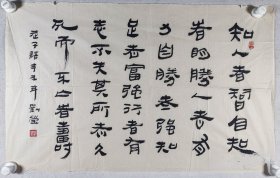 知人者智自知
者明勝人者有
力自勝者強知
足者富強行者有
志不失其所者久
死而不亡者壽
老子語